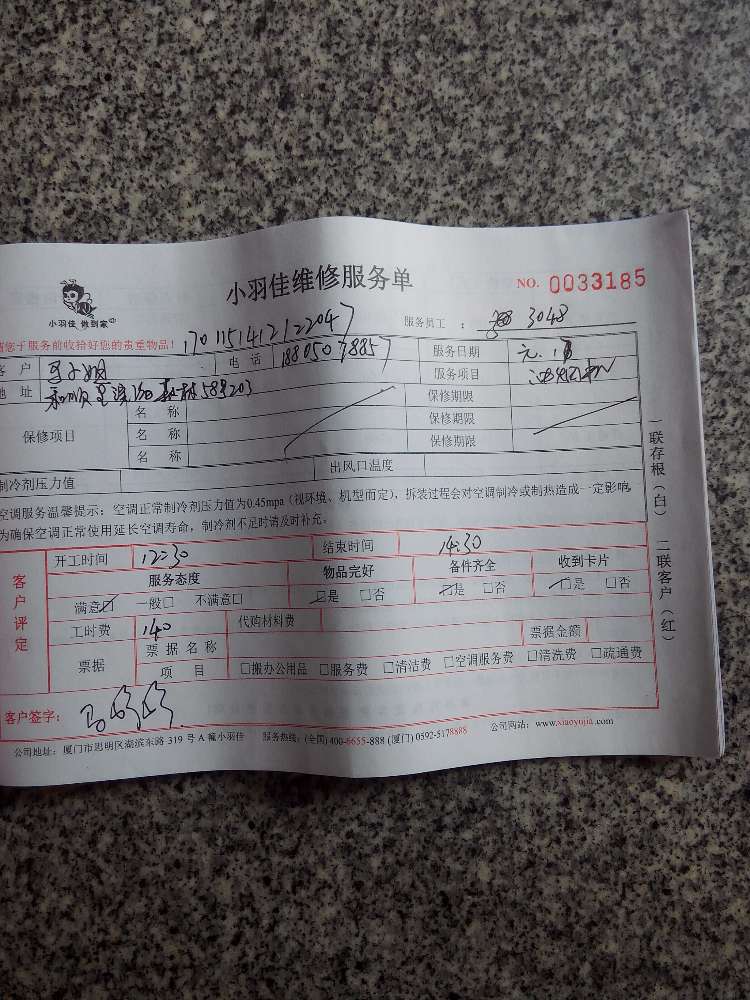 小羽佳维修服务单 NO. 0033185
小羽佳 做到家
服务员工 : 3048
请您于服务前收拾好您的贵重物品! 17011514121 22047
客 户 电 话 18805078857 服务日期
地 址 588203 服务项目
保修项目 名 称 保修期限
名 称 保修期限
名 称 保修期限
制冷剂压力值 出风口温度
空调服务温馨提示:空调正常制冷剂压力值为0.45mpa(视环境、机型而定),拆装过程会对空调制冷或制热造成一定影响,
为确保空调正常使用延长空调寿命,制冷剂不足时请及时补充。
客户评定 开工时间 12:30 结束时间 14:30
服务态度 物品完好 备件齐全 收到卡片
满意☑ 一般□ 不满意□ ☑是 □否 ☑是 □否 ☑是 □否
工时费 140 代购材料费
票据 票据名称 票据金额
项 目 □搬办公用品 □服务费 □清洁费 □空调服务费 □清洗费 □疏通费
客户签字:
公司地址:厦门市思明区湖滨东路 319 号 A 幢小羽佳 服务热线:(全国)400-6655-888 (厦门) 0592-5178888 公司网站:www.xiaoyujia.com
一联存根(白) 二联客户(红)